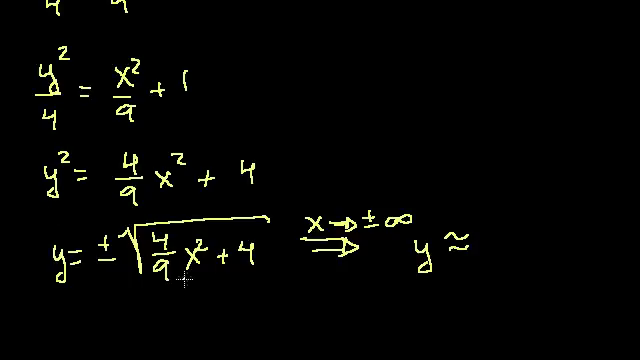 4 9
y²/4 = x²/9 + 1
y² = 4/9 x² + 4
y = ± √(4/9 x² + 4) x → ± ∞ ⇒ y ≈